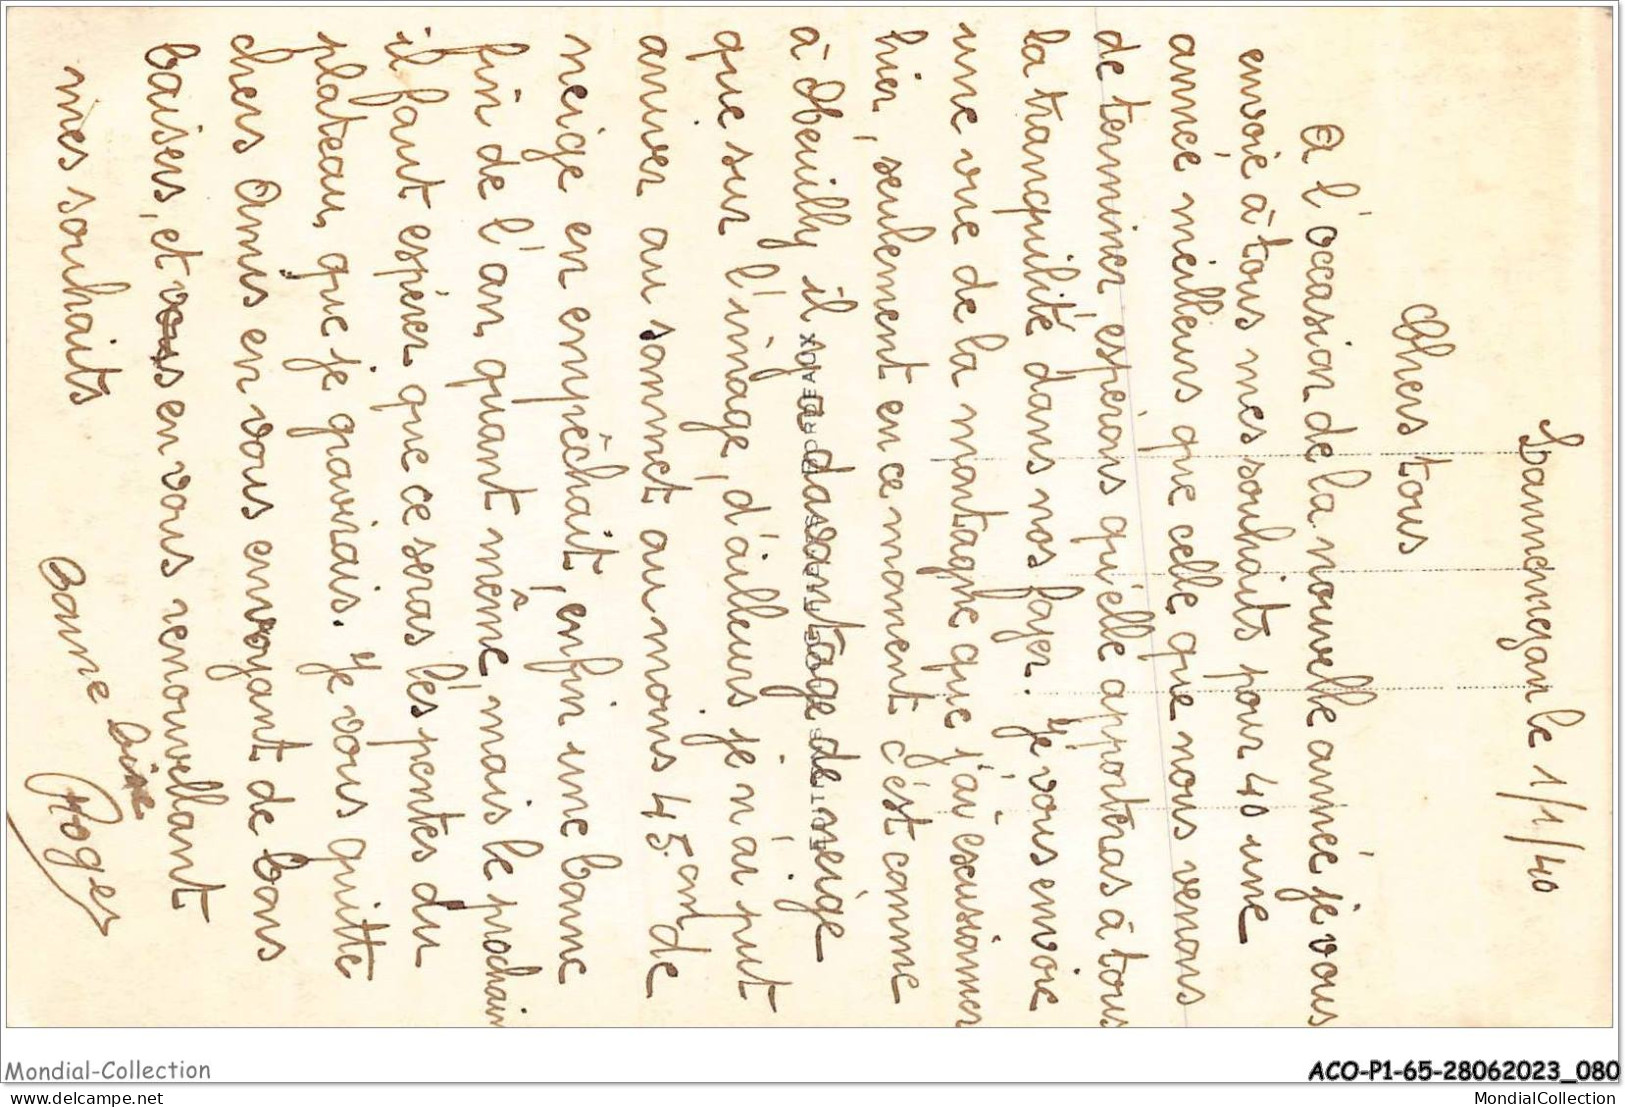 Lannemezan le 1/1/40
Chers tous
A l'occasion de la nouvelle année je vous
envoie à tous mes souhaits pour 40 une
année meilleurs que celle que nous venons
de terminer, espérons qu'elle apporteras à tous
la tranquilité dans nos foyer. Je vous envoie
une vue de la montagne que j'ai escusionner
hier, seulement en ce moment c'est comme
à Obeuilly il y a davantage de neige
que sur l'image, d'ailleurs je n'ai put
arriver au sommet au moins 45 cm de
neige en empêchait, enfin une bonne
fin de l'an, quant même, mais le prochain
il faut espérer que ce seras les pentes du
plateau, que je gravirais. Je vous quitte
chers Amis en vous envoyant de bons
baisers, et vous en vous renouvellant
mes souhaits
Bonne bise
Roger
Mondial-Collection
ACO-P1-65-28062023_080
delcampe.net
MondialCollection